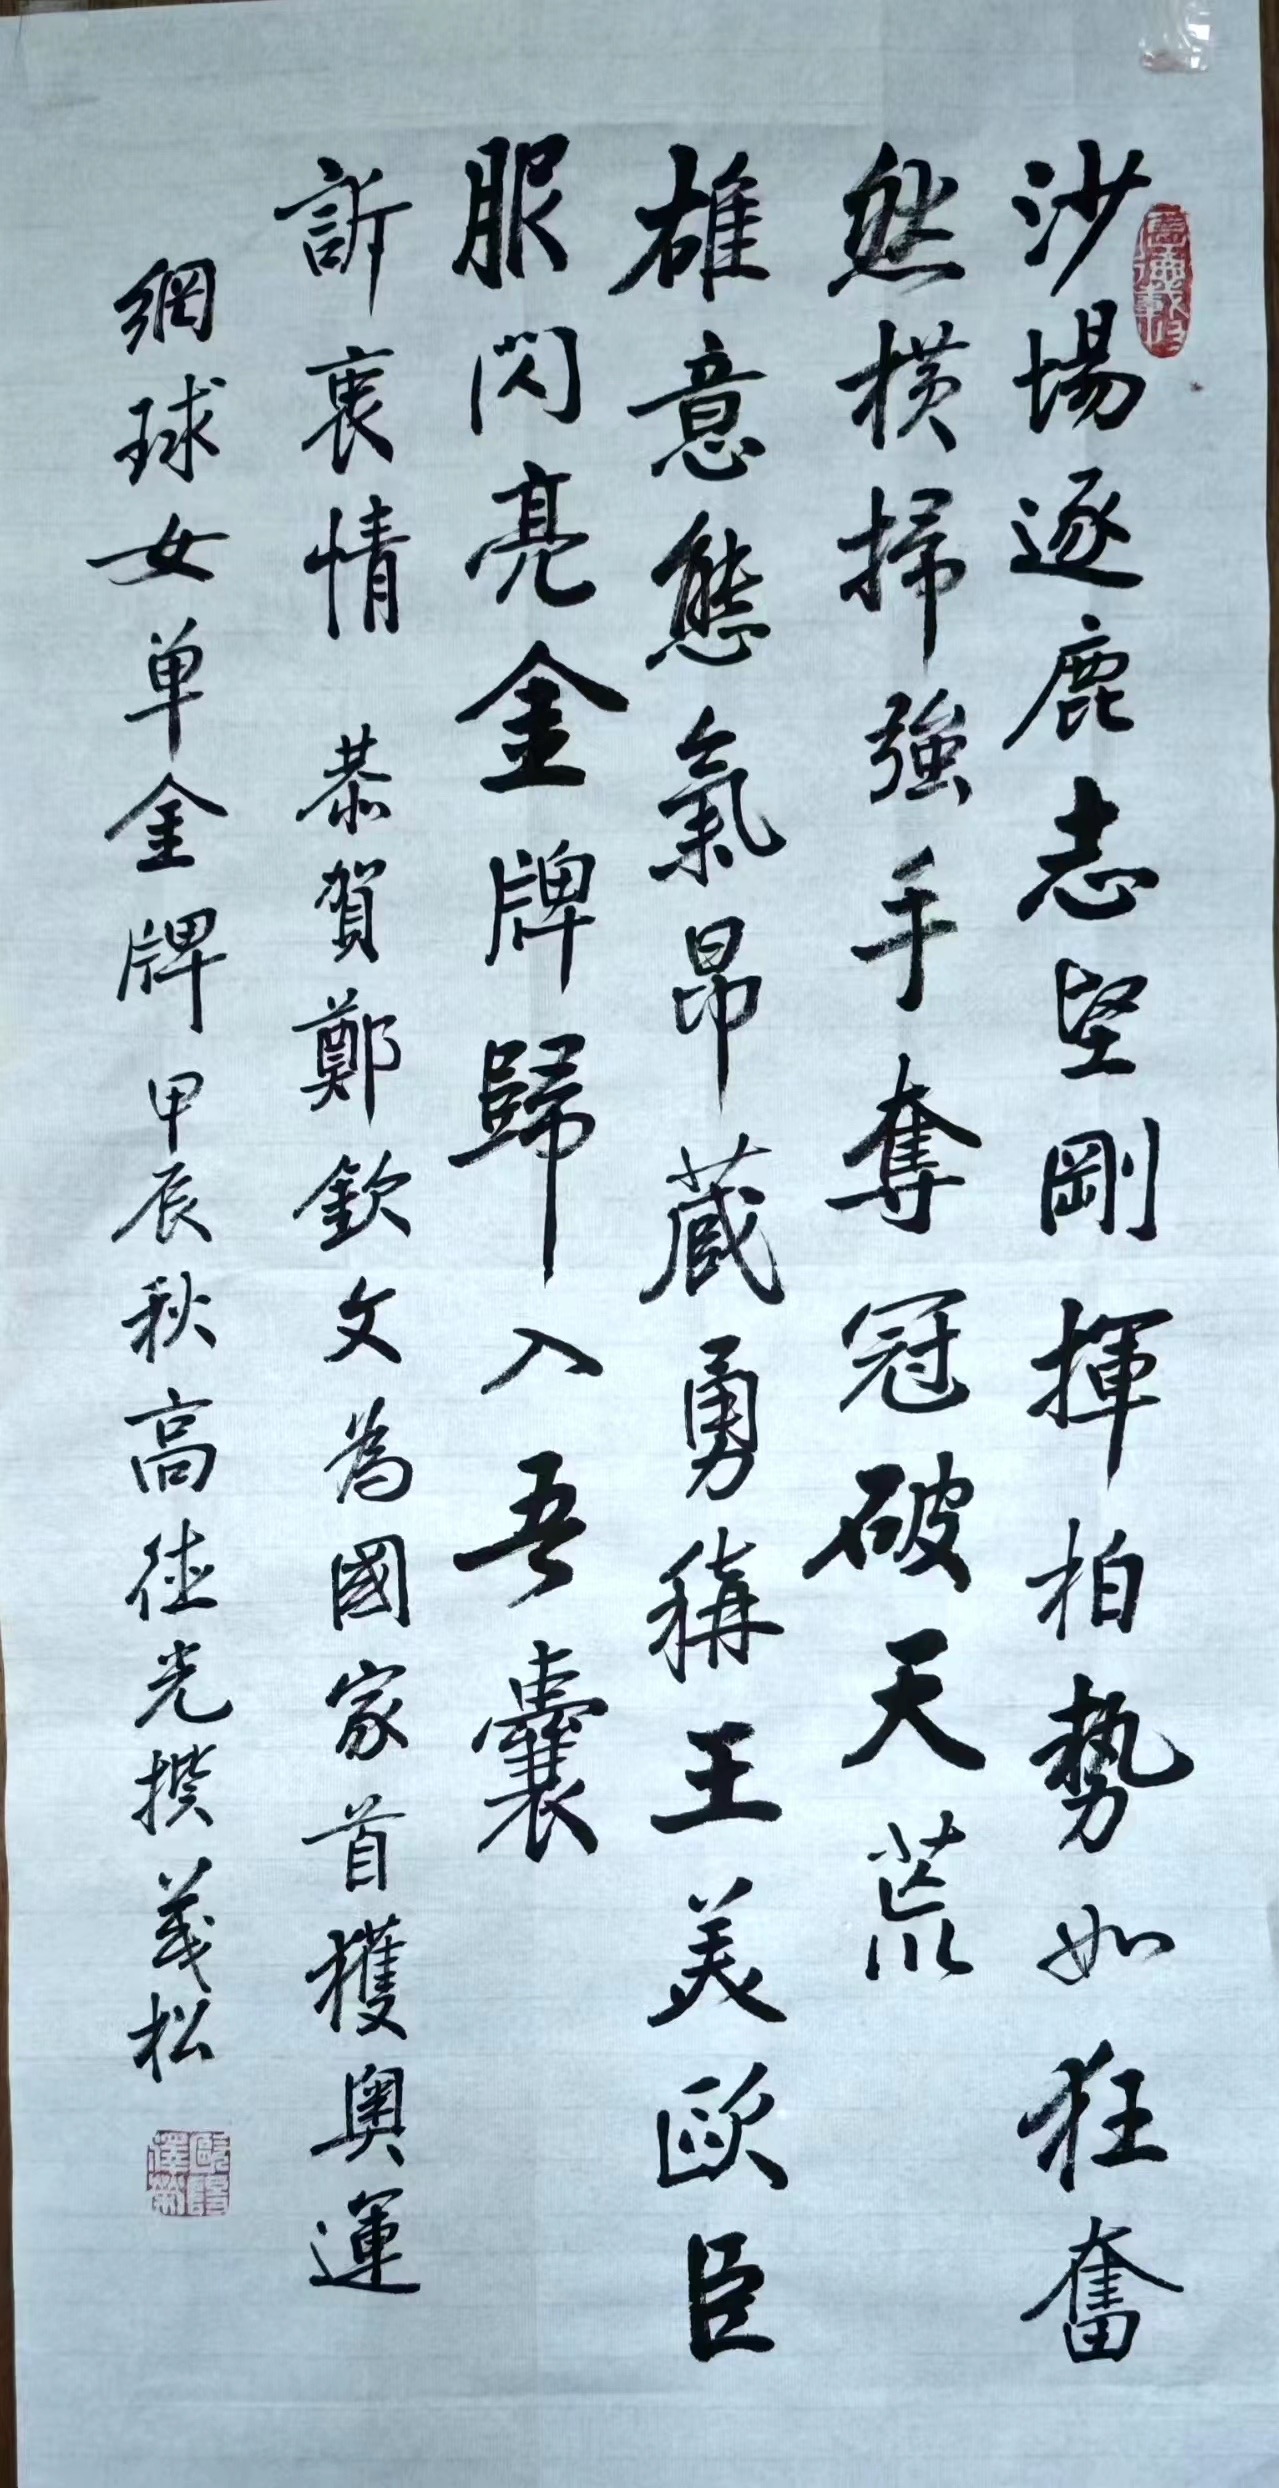 沙場逐鹿志堅剛揮柏勢如狂奮
然橫掃強手奪冠破天荒
雄意態氣昂蔵勇稱王美歐臣
服閃亮金牌歸入吾囊
訴衷情 恭賀鄭欽文為國家首獲奧運
網球女单金牌甲辰秋高徒光撰義松